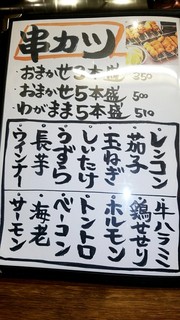 串カツ
・おまかせ3本盛 350
・おまかせ5本盛 500
・わがまま5本盛 510
・レンコン
・茄子
・玉ねぎ
・しいたけ
・うずら
・長芋
・ウィンナー
・牛ハラミ
・鶏せせり
・ホルモン
・トントロ
・ベーコン
・海老
・サーモン